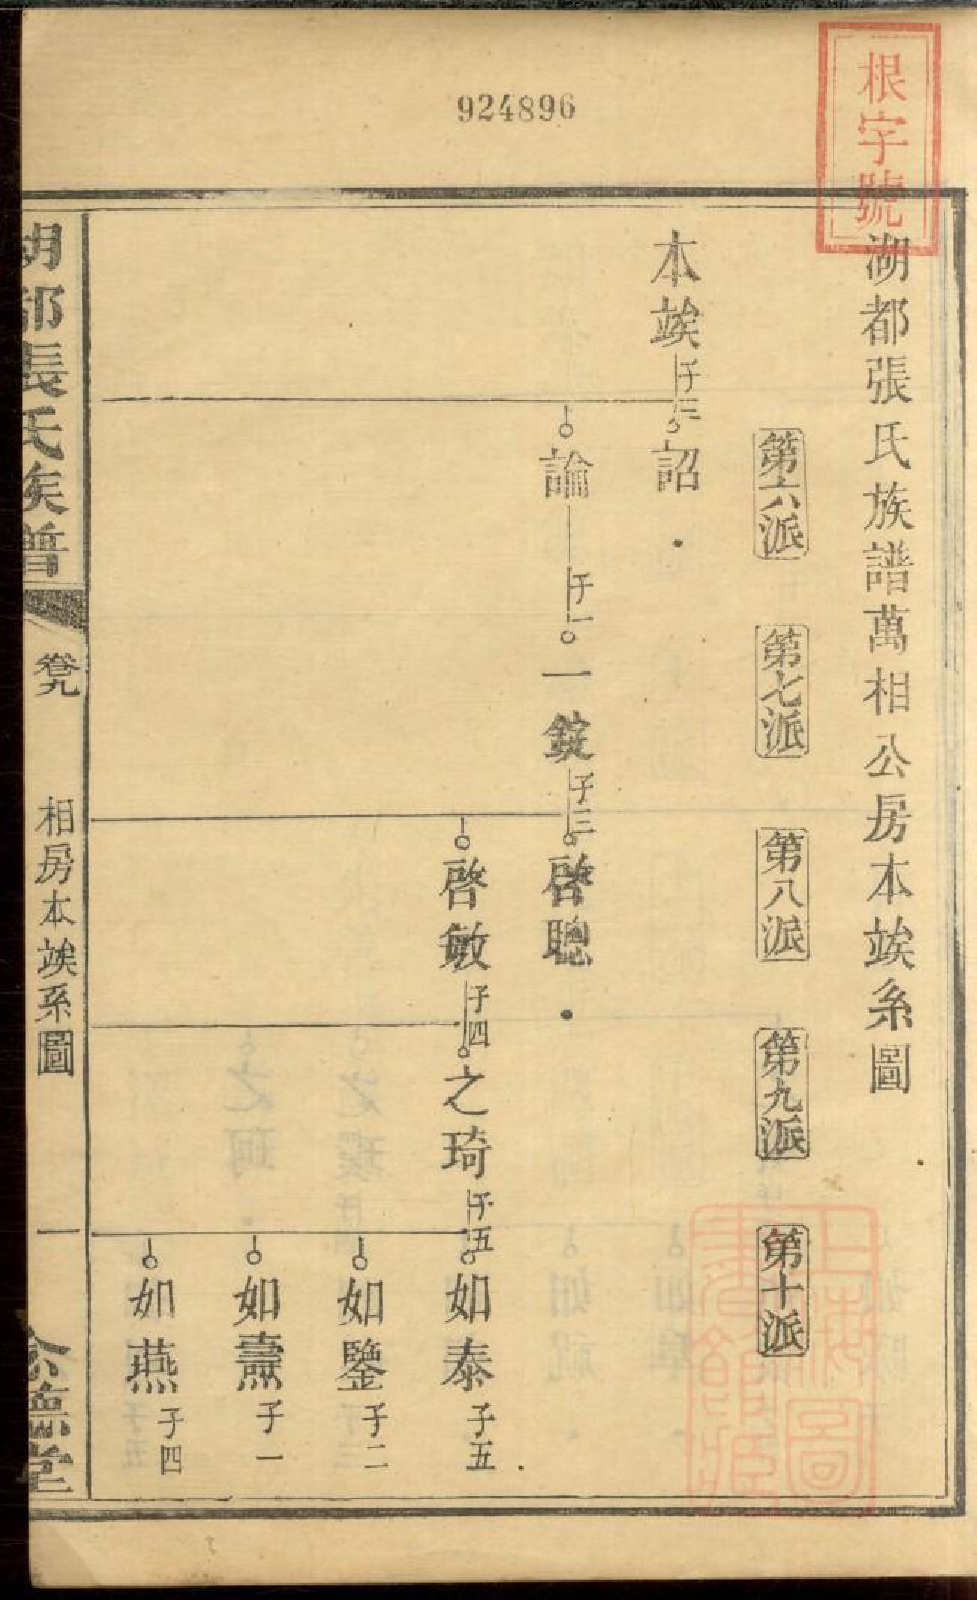 924896
根字號
湖都張氏族譜萬相公房本竢系圖
第六派
第七派
第八派
第九派
第十派
本竢 子三
詔
論 子一
一錠 子二
啓聰
啓敏 子四
之琦 子五
如泰 子五
如鑒 子二
如燾 子一
如燕 子四
胡都張氏族譜
卷九
相房本竢系圖
一
德堂